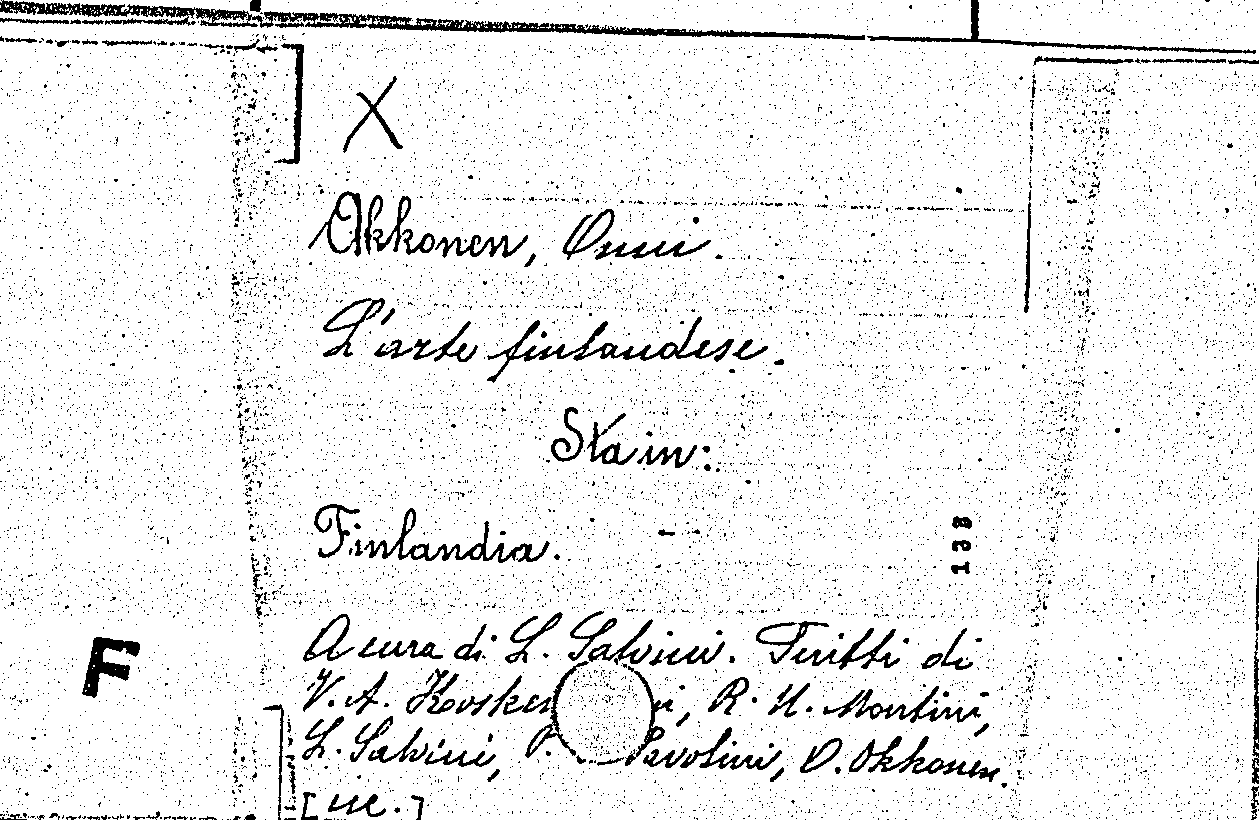 X
Okkonen, Onni.
L'arte finlandese.
Sta in:
Finlandia.
133
F
A cura di L. Salvini. Scritti di
V. A. Kosken i, R. U. Montini,
L. Salvini, P. Pavolini, O. Okkonen.
[ecc.]